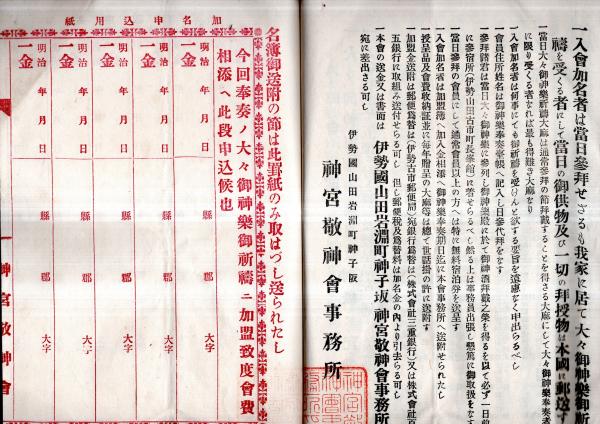 一入會加名者は當日參拜せさるも我家に居て大々御神樂御祈
禱を受くる者にして當日の御供物及ひ一切の拜授物は本國に郵送す
一當日大々御神樂祈禱大麻は通常參拜の節拜戴することを得さる大麻にして大々御神樂奉奏者
に限り受くる者なれば最も得難き大麻なり
一入會加名者は何事にても御祈禱を受けんと欲する要旨を遠慮なく申出らるべし
一會員住所姓名は御神樂奉奏臺帳へ記入し日參代拜をなす
參拜諸君は當日大々御神樂に參列し御神樂殿に於て御神酒拜戴之榮を得るを以て必ず一日前
に參宿所(伊勢山田古市町長峯館)に着せらるべし然る上は事務員出張し懇篤に御取扱をなす
當日參拜の會員にして通常會員以上の方へは特に無料宿泊券を送呈す
一入會加名者は加盟簿へ加入金相添へ御神樂奉奏期日迄に本會事務所へ送附せられたし
授呈品及會費收納証並に每年贈呈の大麻等は總て世話掛の許に送附す
一加盟金送附は郵便爲替は(伊勢古市郵便局)宛銀行爲替は(株式會社三重銀行)又は株式會社百
五銀行に取組み送付せらる可し 但し郵便稅及爲替料は加名金の內より引去らる可し
一本會の送金又は書面は 伊勢國山田岩淵町神子坂 神宮敬神會事務所
宛に差出さる可し
伊勢國山田岩淵町神子阪
神宮敬神會事務所
加名申込用紙
名簿御送附の節は此罫紙のみ取はづし送られたし
今回奉奏ノ大々御神樂御祈禱ニ加盟致度會費
相添へ此段申込候也
明治 年 月 日 縣 郡 大字
一金
明治 年 月 日 縣 郡 大字
一金
明治 年 月 日 縣 郡 大字
一金
明治 年 月 日 縣 郡 大字
一金
明治 年 月 日 縣 郡 大字
一金
神宮敬神會